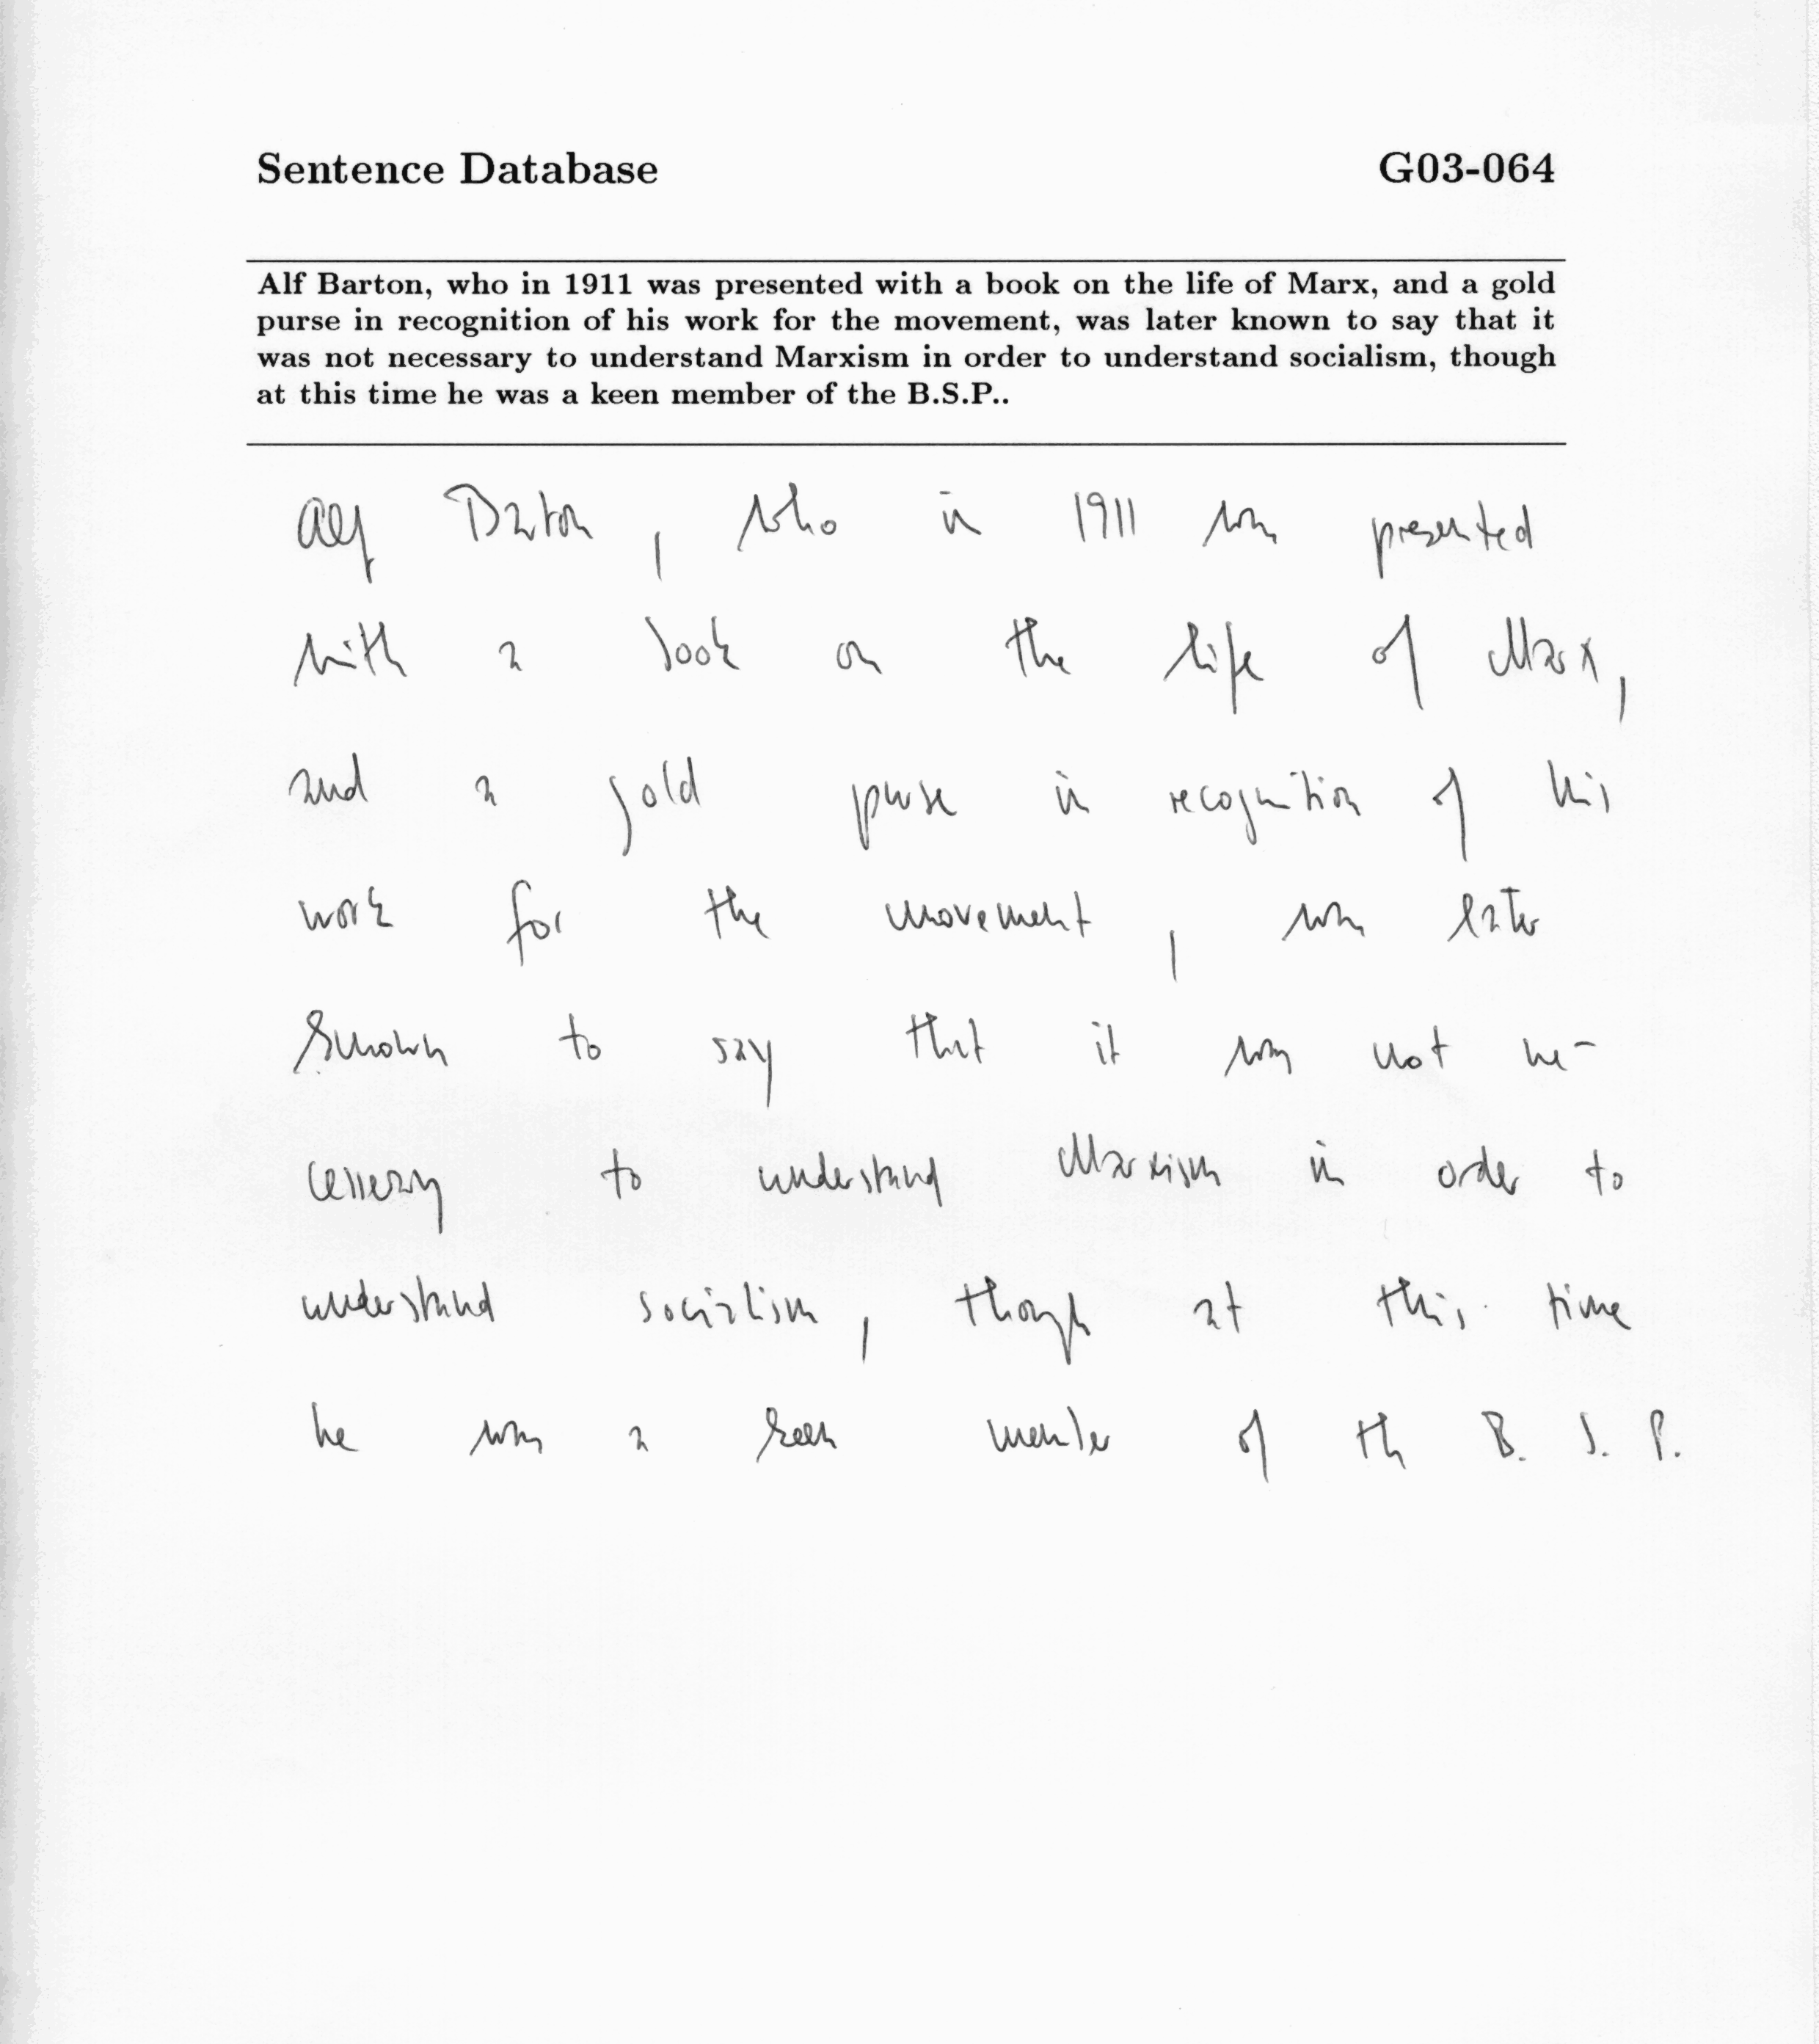 Sentence Database G03-064
Alf Barton, who in 1911 was presented with a book on the life of Marx, and a gold
purse in recognition of his work for the movement, was later known to say that it
was not necessary to understand Marxism in order to understand socialism, though
at this time he was a keen member of the B.S.P..
Alf Barton, who in 1911 was presented
with a book on the life of Marx,
and a gold purse in recognition of his
work for the movement, was later
known to say that it was not ne-
cessary to understand Marxism in order to
understand socialism, though at this time
he was a keen member of th B. S. P.